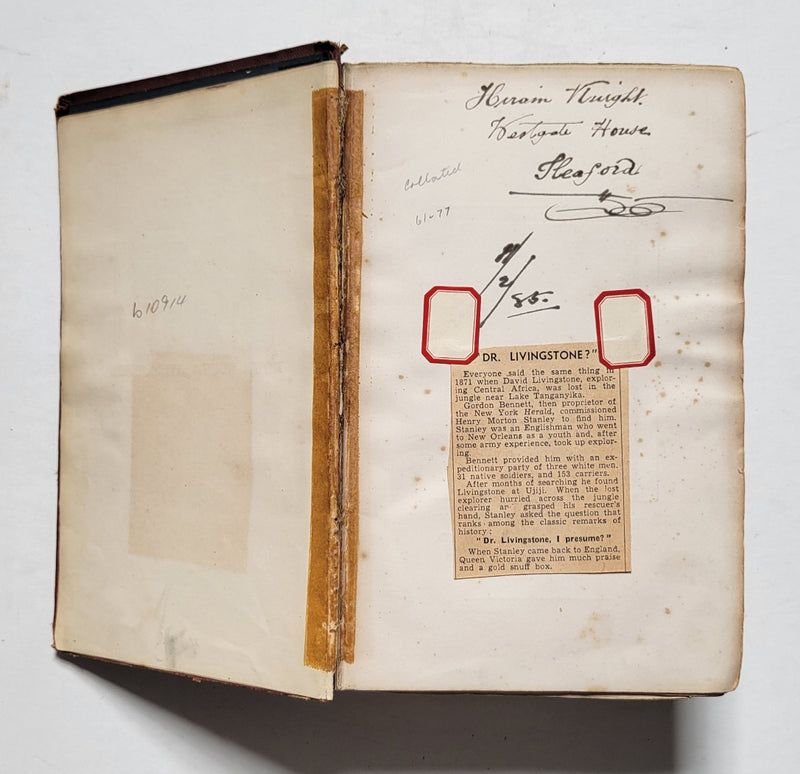 b10914
Hiram Knight.
Westgate House
Sleaford
collated
61-77
11/2/85.
DR. LIVINGSTONE?"
Everyone said the same thing in
1871 when David Livingstone, explor-
ing Central Africa, was lost in the
jungle near Lake Tanganyika.
Gordon Bennett, then proprietor of
the New York Herald, commissioned
Henry Morton Stanley to find him.
Stanley was an Englishman who went
to New Orleans as a youth and, after
some army experience, took up explor-
ing.
Bennett provided him with an ex-
peditionary party of three white men,
31 native soldiers, and 153 carriers.
After months of searching he found
Livingstone at Ujiji. When the lost
explorer hurried across the jungle
clearing an grasped his rescuer's
hand, Stanley asked the question that
ranks among the classic remarks of
history:
"Dr. Livingstone, I presume?"
When Stanley came back to England,
Queen Victoria gave him much praise
and a gold snuff box.